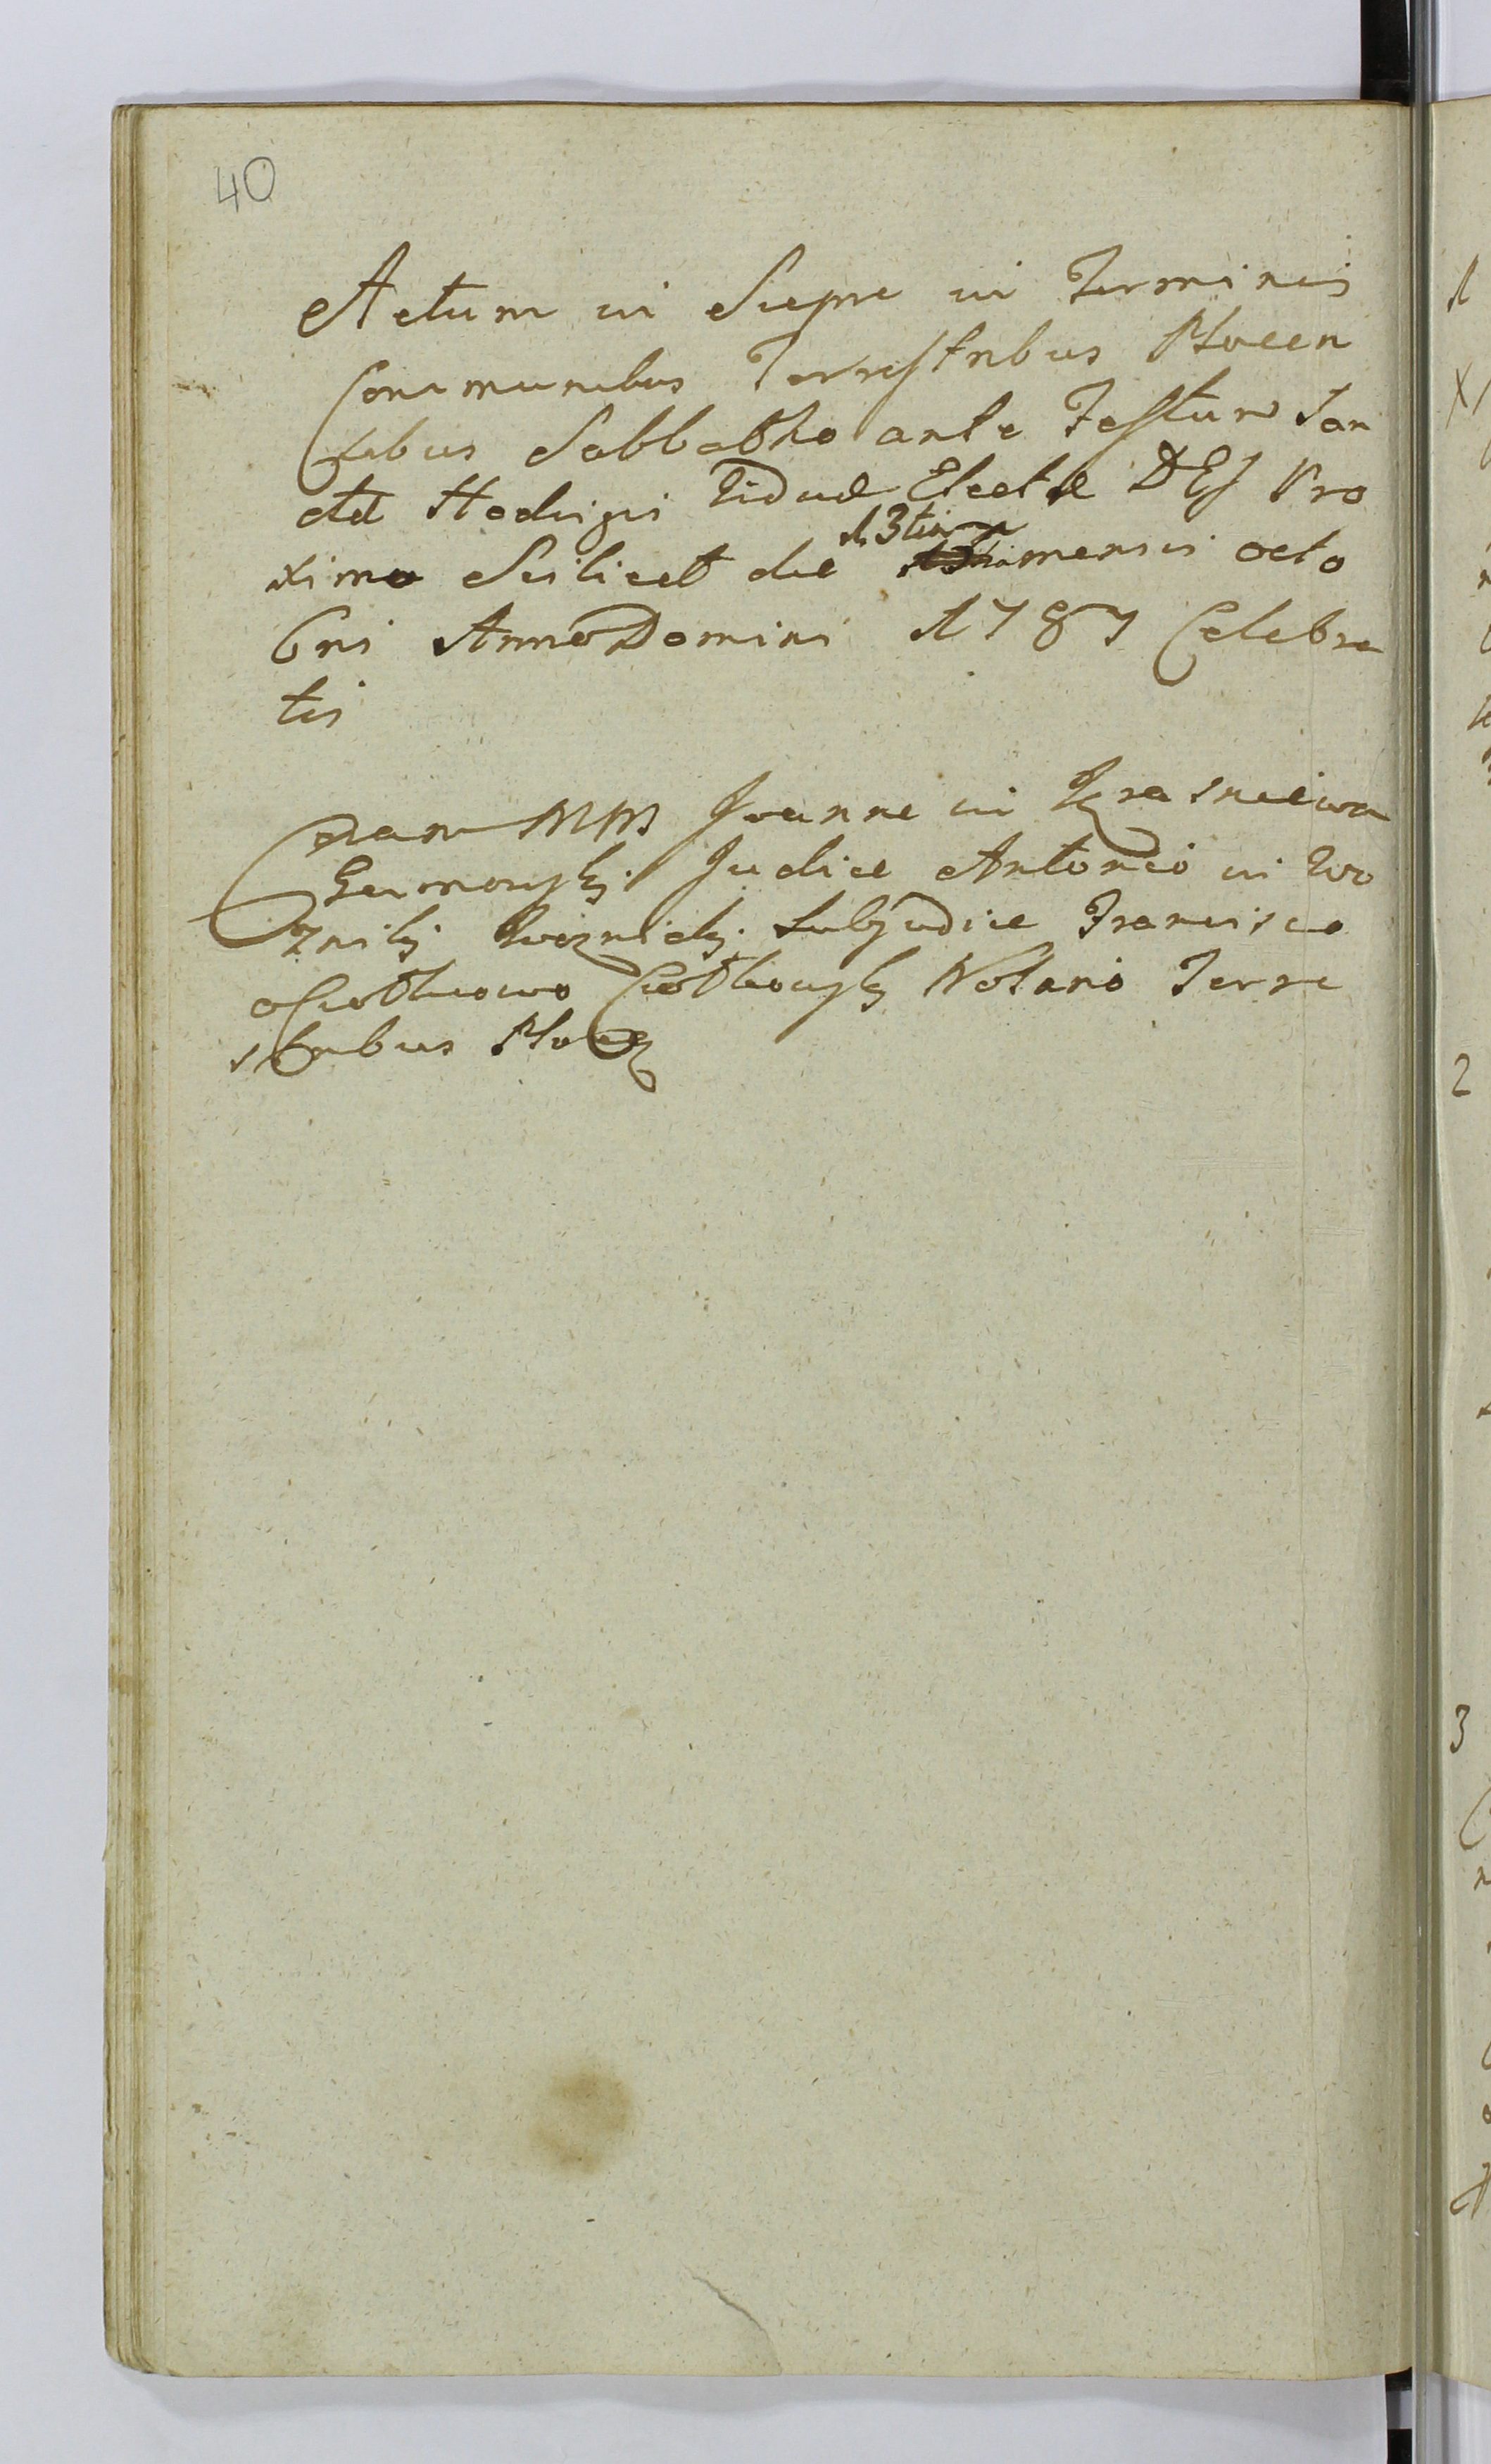 40
Actum in Sieprc in Terminis
Communibus Terrestribus Plocen
sibus Sabbatho ante Festum San
ctæ Hedvigis Viduæ Electæ DEJ Pro
ximo Scilicet die 13tia mensis octo
bris Anno Domini 1787 Celebra
tis
Coram MM Joanne in
Judice Antonio in Wo
znik Subjudice Francisco
Notario Terre
stribus Plocen
1
2
3